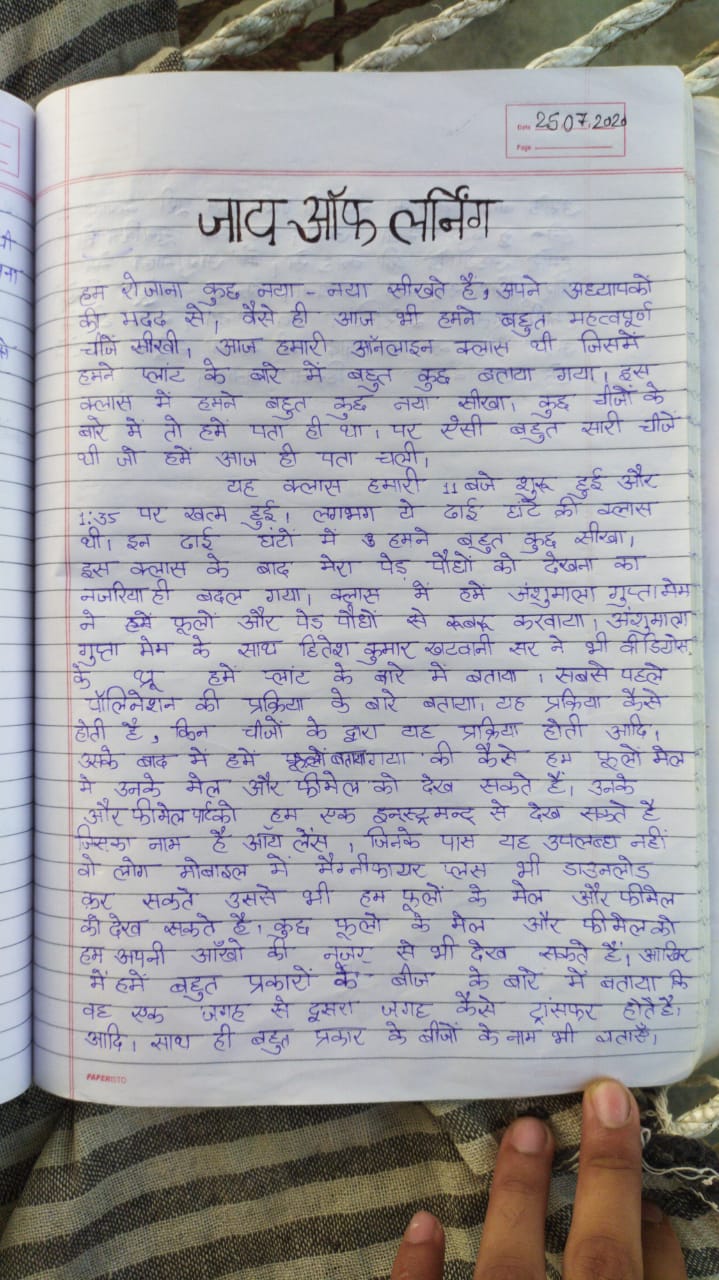 Date 25.07.2020
Page
जाय ऑफ लर्निंग
हम रोजाना कुछ नया - नया सीखते है, अपने अध्यापकों
की मदद से, वैसे ही आज भी हमने बहुत महत्वपूर्ण
चीजें सीखी, आज हमारी ऑनलाइन क्लास थी जिसमें
हमने प्लांट के बारे में बहुत कुछ बताया गया। इस
क्लास में हमने बहुत कुछ नया सीखा। कुछ चीजों के
बारे में तो हमें पता ही था। पर ऐसी बहुत सारी चीजें
थी जो हमें आज ही पता चली।
यह क्लास हमारी 11 बजे शुरू हुई और
1:35 पर खत्म हुई। लगभग ये ढाई घंटे की क्लास
थी। इन ढाई घंटों में हमने बहुत कुछ सीखा।
इस क्लास के बाद मेरा पेड़ पौधों को देखना का
नजरिया ही बदल गया। क्लास में हमें अंशुमाला गुप्ता मेम
ने हमें फूलों और पेड पौधों से रूबरू करवाया। अंशुमाला
गुप्ता मेम के साथ हितेश कुमार खटवानी सर ने भी वीडियोस
के थ्रू हमें प्लांट के बारे में बताया। सबसे पहले
पॉलिनेशन की प्रक्रिया के बारे बताया। यह प्रक्रिया कैसे
होती है, किन चीजों के द्वारा यह प्रक्रिया होती आदि।
उसके बाद में हमें फूलों बताया गया की कैसे हम फूलों मेल
मे उनके मेल और फीमेल को देख सकते हैं। उनके
और फीमेल पार्ट को हम एक इनस्ट्रूमन्ट से देख सकते है
जिसका नाम है ऑय लेंस, जिनके पास यह उपलब्ध नहीं
वो लोग मोबाइल में मैग्नीफायर प्लस भी डाउनलोड
कर सकते उससे भी हम फूलों के मेल और फीमेल
को देख सकते है। कुछ फूलो के मेल और फीमेल को
हम अपनी आँखो की नजर से भी देख सकते हैं। आखिर
में हमें बहुत प्रकारों के बीज के बारे में बताया कि
वह एक जगह से दूसरा जगह कैसे ट्रांसफर होते है।
आदि। साथ ही बहुत प्रकार के बीजों के नाम भी बताऐ।
PAPERISTO